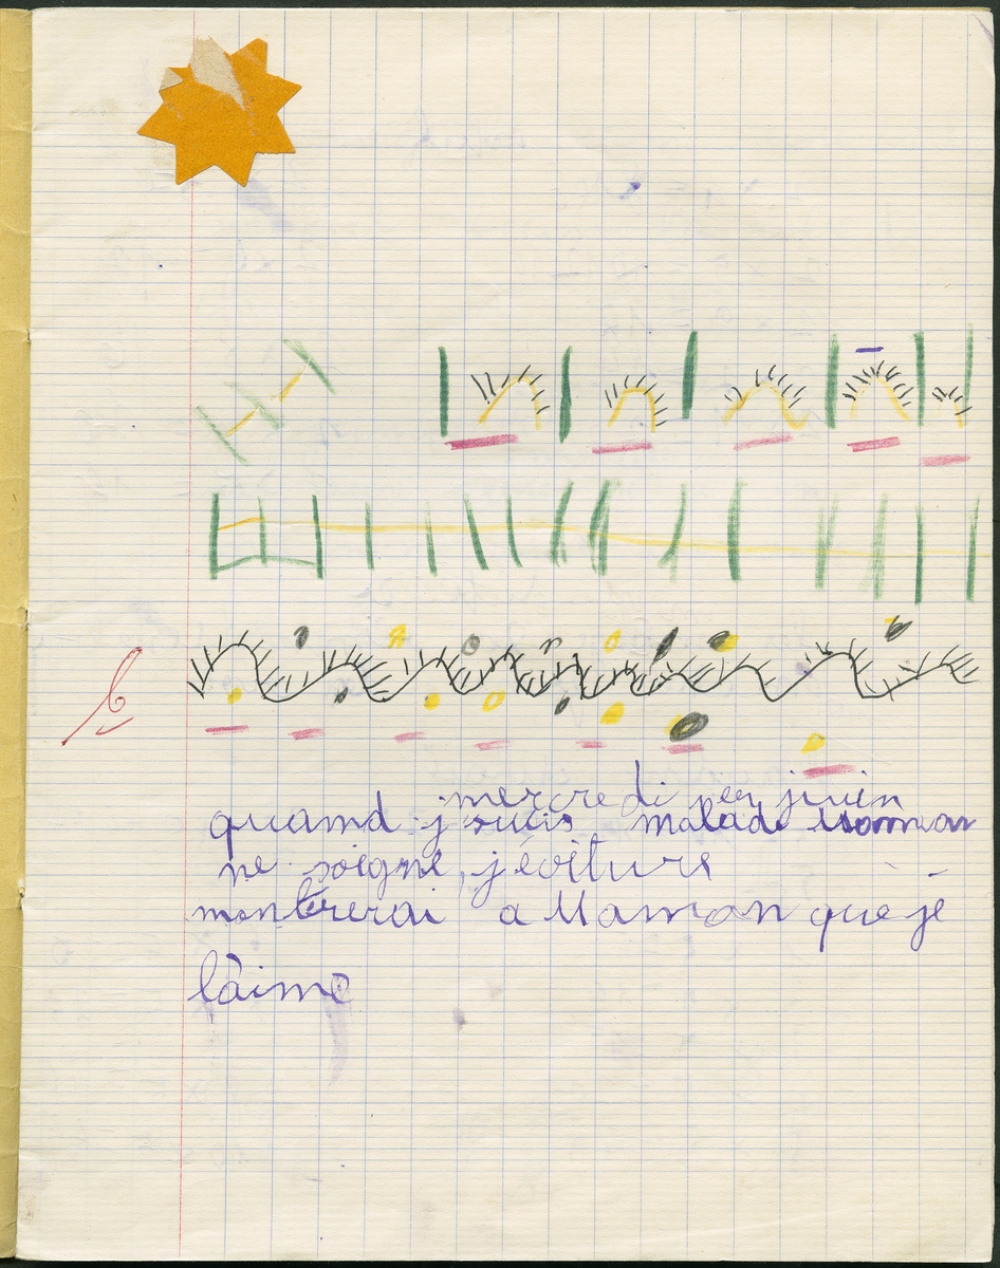 b
mercredi 1er juin
quand j suis malade maman
me soigne, j'éviture
montrerai a Maman que je
l'aime